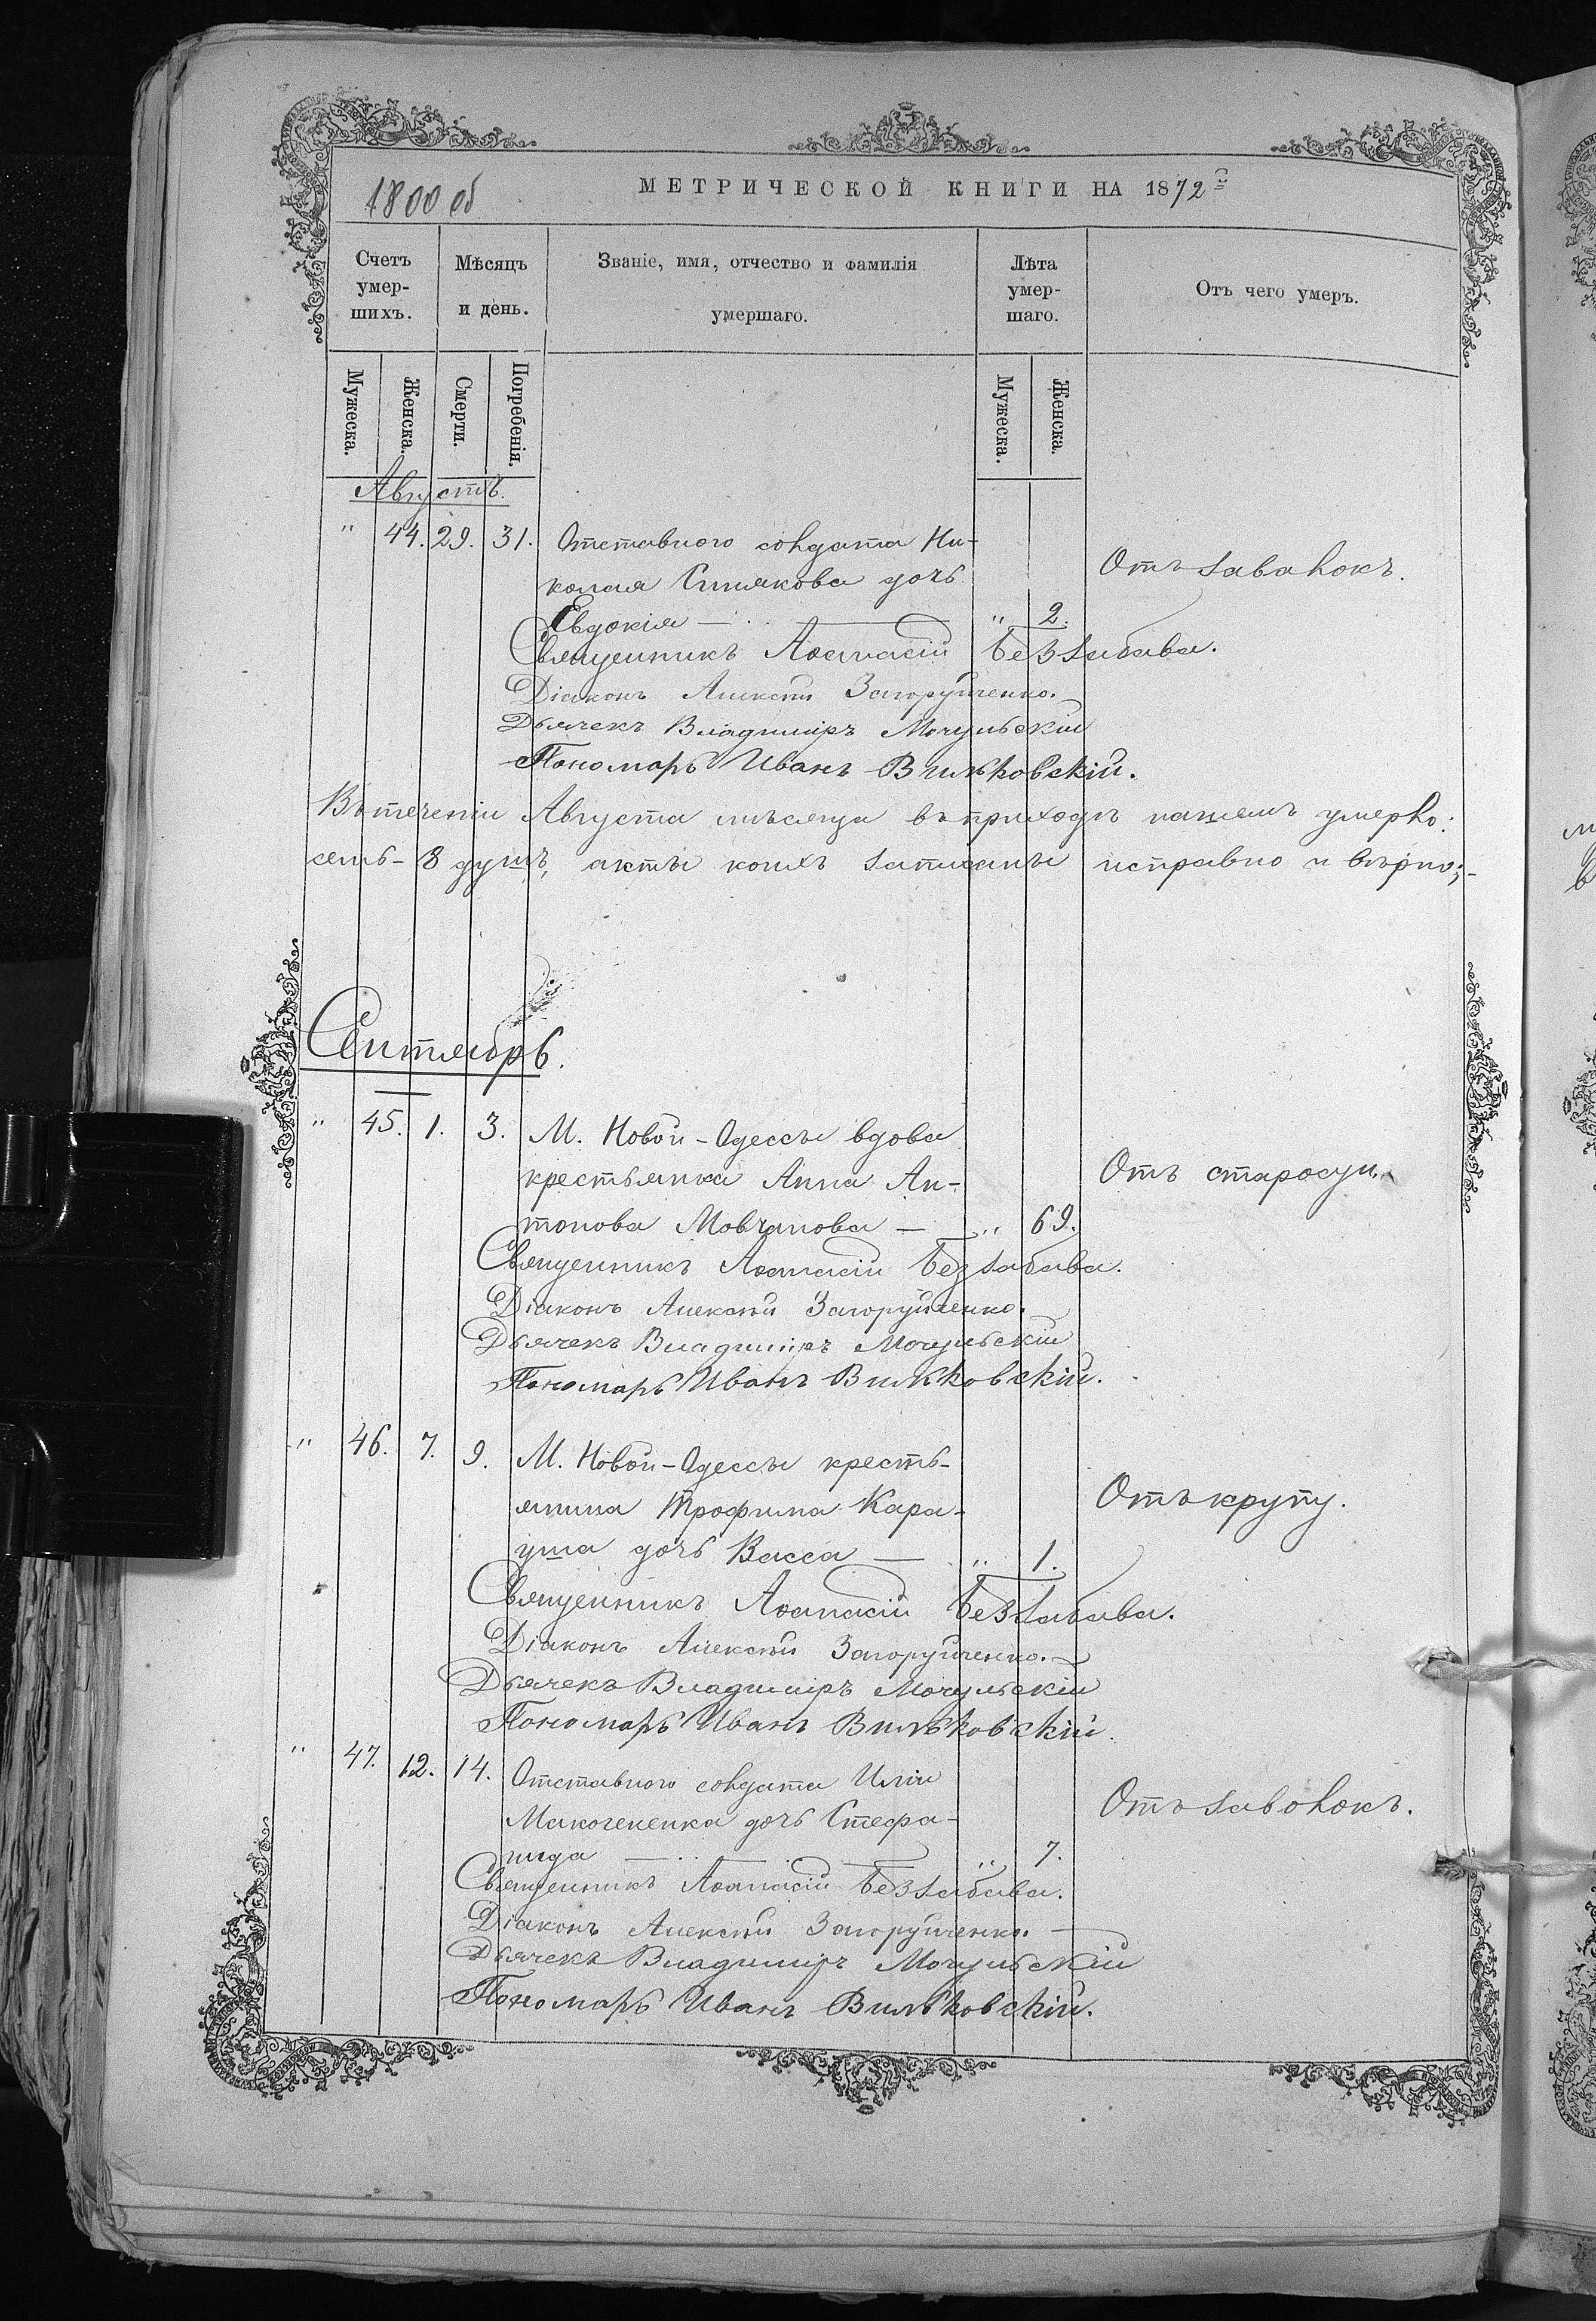 1800 об
МЕТРИЧЕСКОЙ КНИГИ НА 1872й
Счетъ умер-шихъ.
Мѣсяцъ и день.
Званіе, имя, отчество и фамилія умершаго.
Лѣта умер-шаго.
Отъ чего умеръ.
Мужеска.
Женска.
Смерти.
Погребенія.
Мужеска.
Женска.
Августъ.
" 44. 29. 31. Отставного солдата Ни-
колая Синякова дочь Отъ завалокъ.
Евдокія — " 2.
Священникъ Аѳанасій Беззабава.
Діаконъ Алексѣй Загоруйченко.
Дьячекъ Владиміръ Мочульскій
Пономарь Иванъ Вильковскій.
Въ теченіи Августа мѣсяца въ приходѣ нашемъ умерло:
семь - 8 душъ, акты коихъ записаны исправно и вѣрно;-
Сентябрь.
" 45. 1. 3. М. Новой-Одессы вдова
крестьянка Анна Ан- Отъ старосци.
тонова Мовчанова — " 69.
Священникъ Аѳанасій Беззабава.
Діаконъ Алексѣй Загоруйченко.
Дьячекъ Владиміръ Мочульскій
Пономарь Иванъ Вильковскій.
" 46. 7. 9. М. Новой-Одессы кресть-
янина Трофима Кара- Отъ крупу.
уша дочь Васса — " 1.
Священникъ Аѳанасій Беззабава.
Діаконъ Алексѣй Загоруйченко.
Дьячекъ Владиміръ Мочульскій
Пономарь Иванъ Вильковскій.
" 47. 12. 14. Отставного солдата Иліи
Макогененка дочь Стефа- Отъ заволокъ.
нида — " 7.
Священникъ Аѳанасій Беззабава.
Діаконъ Алексѣй Загоруйченко.
Дьячекъ Владиміръ Мочульскій
Пономарь Иванъ Вильковскій.